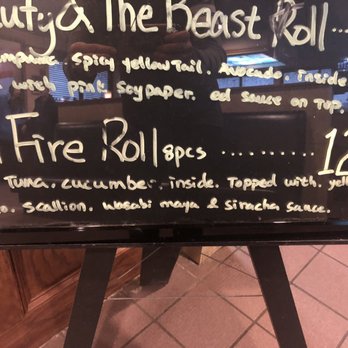 uty & The Beast Roll ...
Spicy yellowtail. Avocado. inside
with pink soypaper. eel sauce on top.
Fire Roll 8pcs .......... 12
Tuna. cucumber. inside. Topped with. yel
o. scallion. wasabi mayo & Siracha sauce.